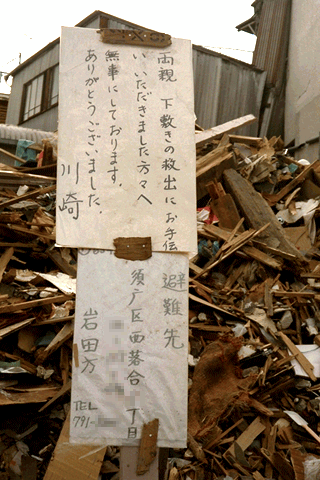 両親 下敷きの救出にお手伝
い いただきました方々へ
無事にしております。
ありがとうございました。
川崎
避難先
須磨区西落合 丁目
岩田方
TEL
791-